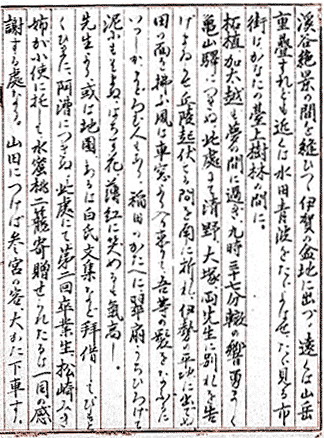 溪谷絶景の間を縫ひつゝ伊賀の盆地に出づ　遠くは山岳
重疊すれども近くは水田青波をたゞよはせたゞ見る市
街はかなたの臺上樹林の間に。
柘植加太越も夢の間に過ぎ、九時三十七分轍の響勇ましく
亀山驛につきぬ　此處にて清野、大塚両先生に別れを告
げ 丘陵起伏せる間を南に折れ伊勢の平地に出でぬ
田の面を拂ふ風は車窓より入り来りて吾等の髪をなぶる
いつしか 人もあり　稲田のかたへに翠扇うちひろげて
泥にもそまぬはちすの花薄紅に 氣高し。
先生より或は地圖あるは白氏文集など拝借してひもと
くひまに阿漕につきぬ。此處にて第二回卒業生松崎ふき
姉が小使に托して水蜜桃二籠寄贈せられたるは一同の感
謝する處なり。山田につけば参宮の客大かた下車す。